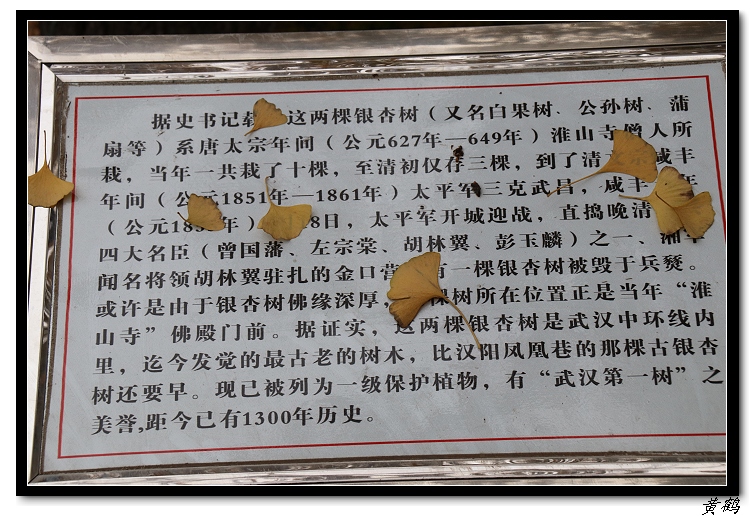 据史书记 这两棵银杏树（又名白果树、公孙树、蒲
扇等）系唐太宗年间（公元627年—649年）淮山寺僧人所
栽，当年一共栽了十棵，至清初仅存三棵，到了清 咸丰
年间（公元1851年—1861年）太平军三克武昌，咸丰 年
（公元18 年） 8日，太平军开城迎战，直捣晚清
四大名臣（曾国藩、左宗棠、胡林翼、彭玉麟）之一、湘军
闻名将领胡林翼驻扎的金口营 有一棵银杏树被毁于兵燹。
或许是由于银杏树佛缘深厚 棵树所在位置正是当年“淮
山寺”佛殿门前。据证实，这两棵银杏树是武汉中环线内
里，迄今发觉的最古老的树木，比汉阳凤凰巷的那棵古银杏
树还要早。现已被列为一级保护植物，有“武汉第一树”之
美誉,距今已有1300年历史。
黄鹤